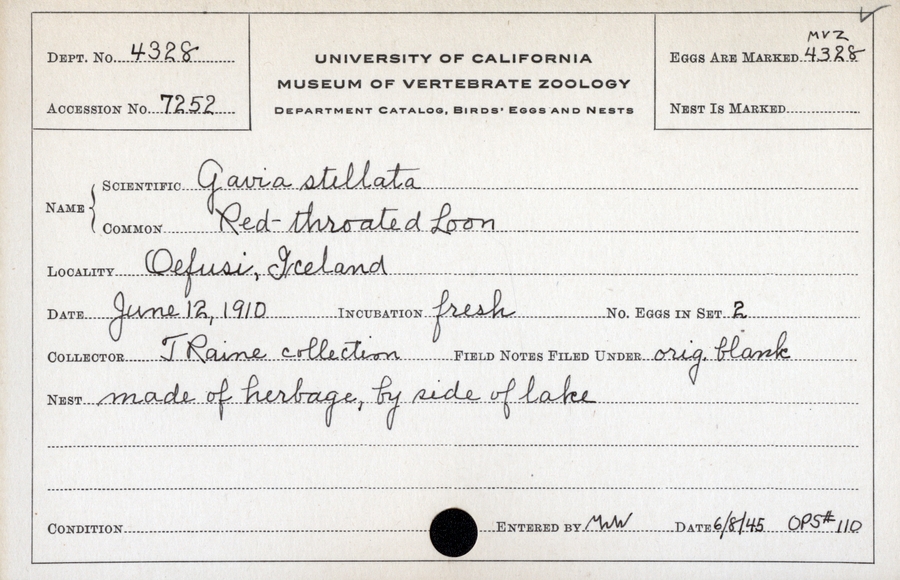 MVZ
Dept. No. 4328
UNIVERSITY OF CALIFORNIA
Eggs Are Marked 4328
MUSEUM OF VERTEBRATE ZOOLOGY
Accession No. 7252
Department Catalog, Birds' Eggs and Nests
Nest Is Marked
Name
Scientific Gavia stellata
Common Red-throated Loon
Locality Oefusi, Iceland
Date June 12, 1910 Incubation fresh No. Eggs in Set 2
Collector J Raine collection Field Notes Filed Under orig. blank
Nest made of herbage, by side of lake
Condition Entered by MWW Date 6/8/45 OPS# 110